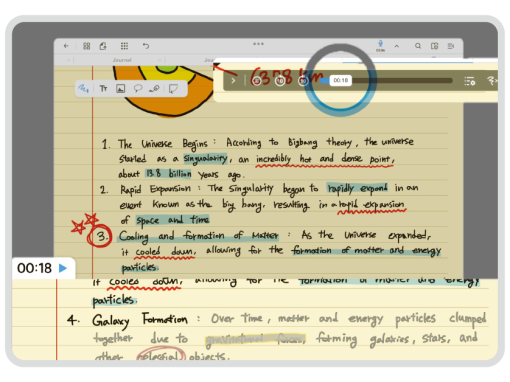 Journal
Journal
6378 km
00:18
1. The Universe Begins : According to Bigbang theory, the universe
started as a singularity, an incredibly hot and dense point,
about 13.8 billion years ago.
2. Rapid Expansion : The Singularity began to rapidly expand in an
event known as the big bang, resulting in a rapid expansion
of space and time
3. Cooling and formation of Matter : As the Universe expanded,
it cooled down, allowing for the formation of matter and energy
particles.
00:18
it cooled down, allowing for the formation of matter and energy
particles.
4. Galaxy Formation : Over Time, matter and energy particles clumped
together due to gravitational forces, forming galaxies, stars, and
other celestial objects.